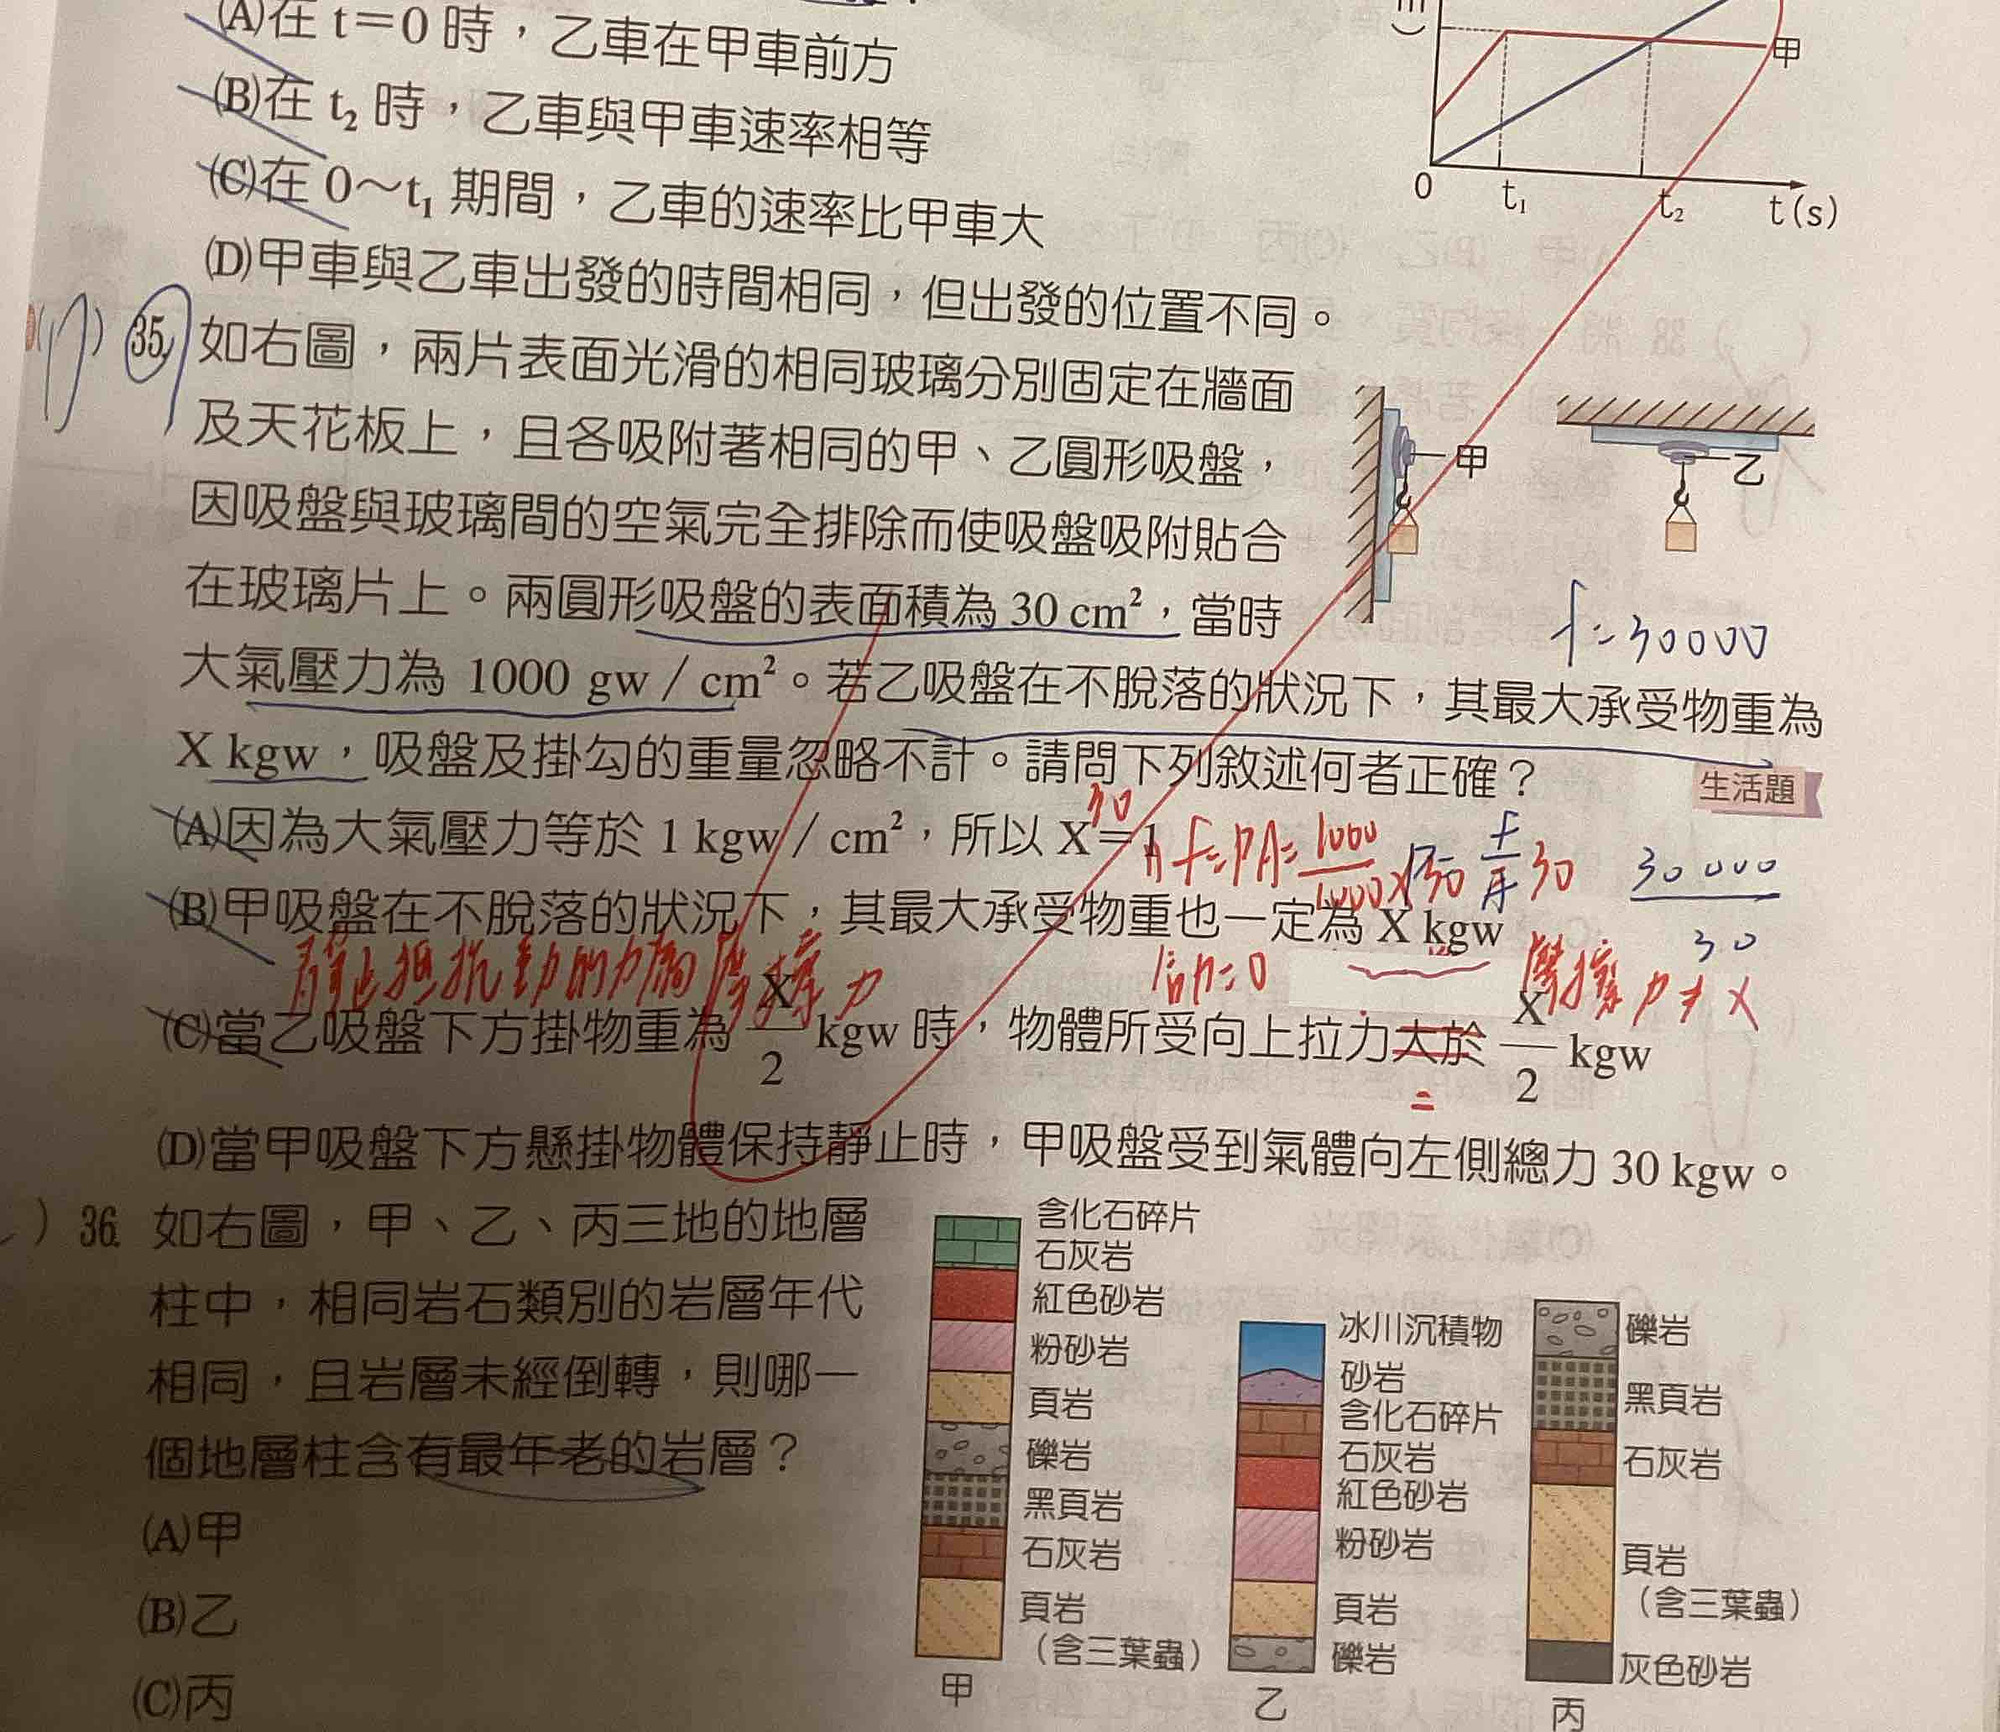 (A)在 t＝0 時，乙車在甲車前方
(B)在 t₂ 時，乙車與甲車速率相等
(C)在 0～t₁ 期間，乙車的速率比甲車大
(D)甲車與乙車出發的時間相同，但出發的位置不同。
甲
0 t₁ t₂ t(s)
35. 如右圖，兩片表面光滑的相同玻璃分別固定在牆面
及天花板上，且各吸附著相同的甲、乙圓形吸盤，
因吸盤與玻璃間的空氣完全排除而使吸盤吸附貼合
在玻璃片上。兩圓形吸盤的表面積為 30 cm²，當時
大氣壓力為 1000 gw／cm²。若乙吸盤在不脫落的狀況下，其最大承受物重為
X kgw，吸盤及掛勾的重量忽略不計。請問下列敘述何者正確？
甲
乙
f=30000
生活題
30
(A)因為大氣壓力等於 1 kgw／cm²，所以 X＝1
f=PA=1000/1000×30
30
30000
30
(B)甲吸盤在不脫落的狀況下，其最大承受物重也一定為 X kgw
靜止抵抗重力的力為摩擦力
合力=0
摩擦力≠X
(C)當乙吸盤下方掛物重為 X/2 kgw 時，物體所受向上拉力大於 X/2 kgw
=
(D)當甲吸盤下方懸掛物體保持靜止時，甲吸盤受到氣體向左側總力 30 kgw。
) 36. 如右圖，甲、乙、丙三地的地層
柱中，相同岩石類別的岩層年代
相同，且岩層未經倒轉，則哪一
個地層柱含有最年老的岩層？
(A)甲
(B)乙
(C)丙
含化石碎片
石灰岩
紅色砂岩
粉砂岩
頁岩
礫岩
黑頁岩
石灰岩
頁岩
（含三葉蟲）
甲
冰川沉積物
砂岩
含化石碎片
石灰岩
紅色砂岩
粉砂岩
頁岩
礫岩
乙
礫岩
黑頁岩
石灰岩
頁岩
（含三葉蟲）
灰色砂岩
丙